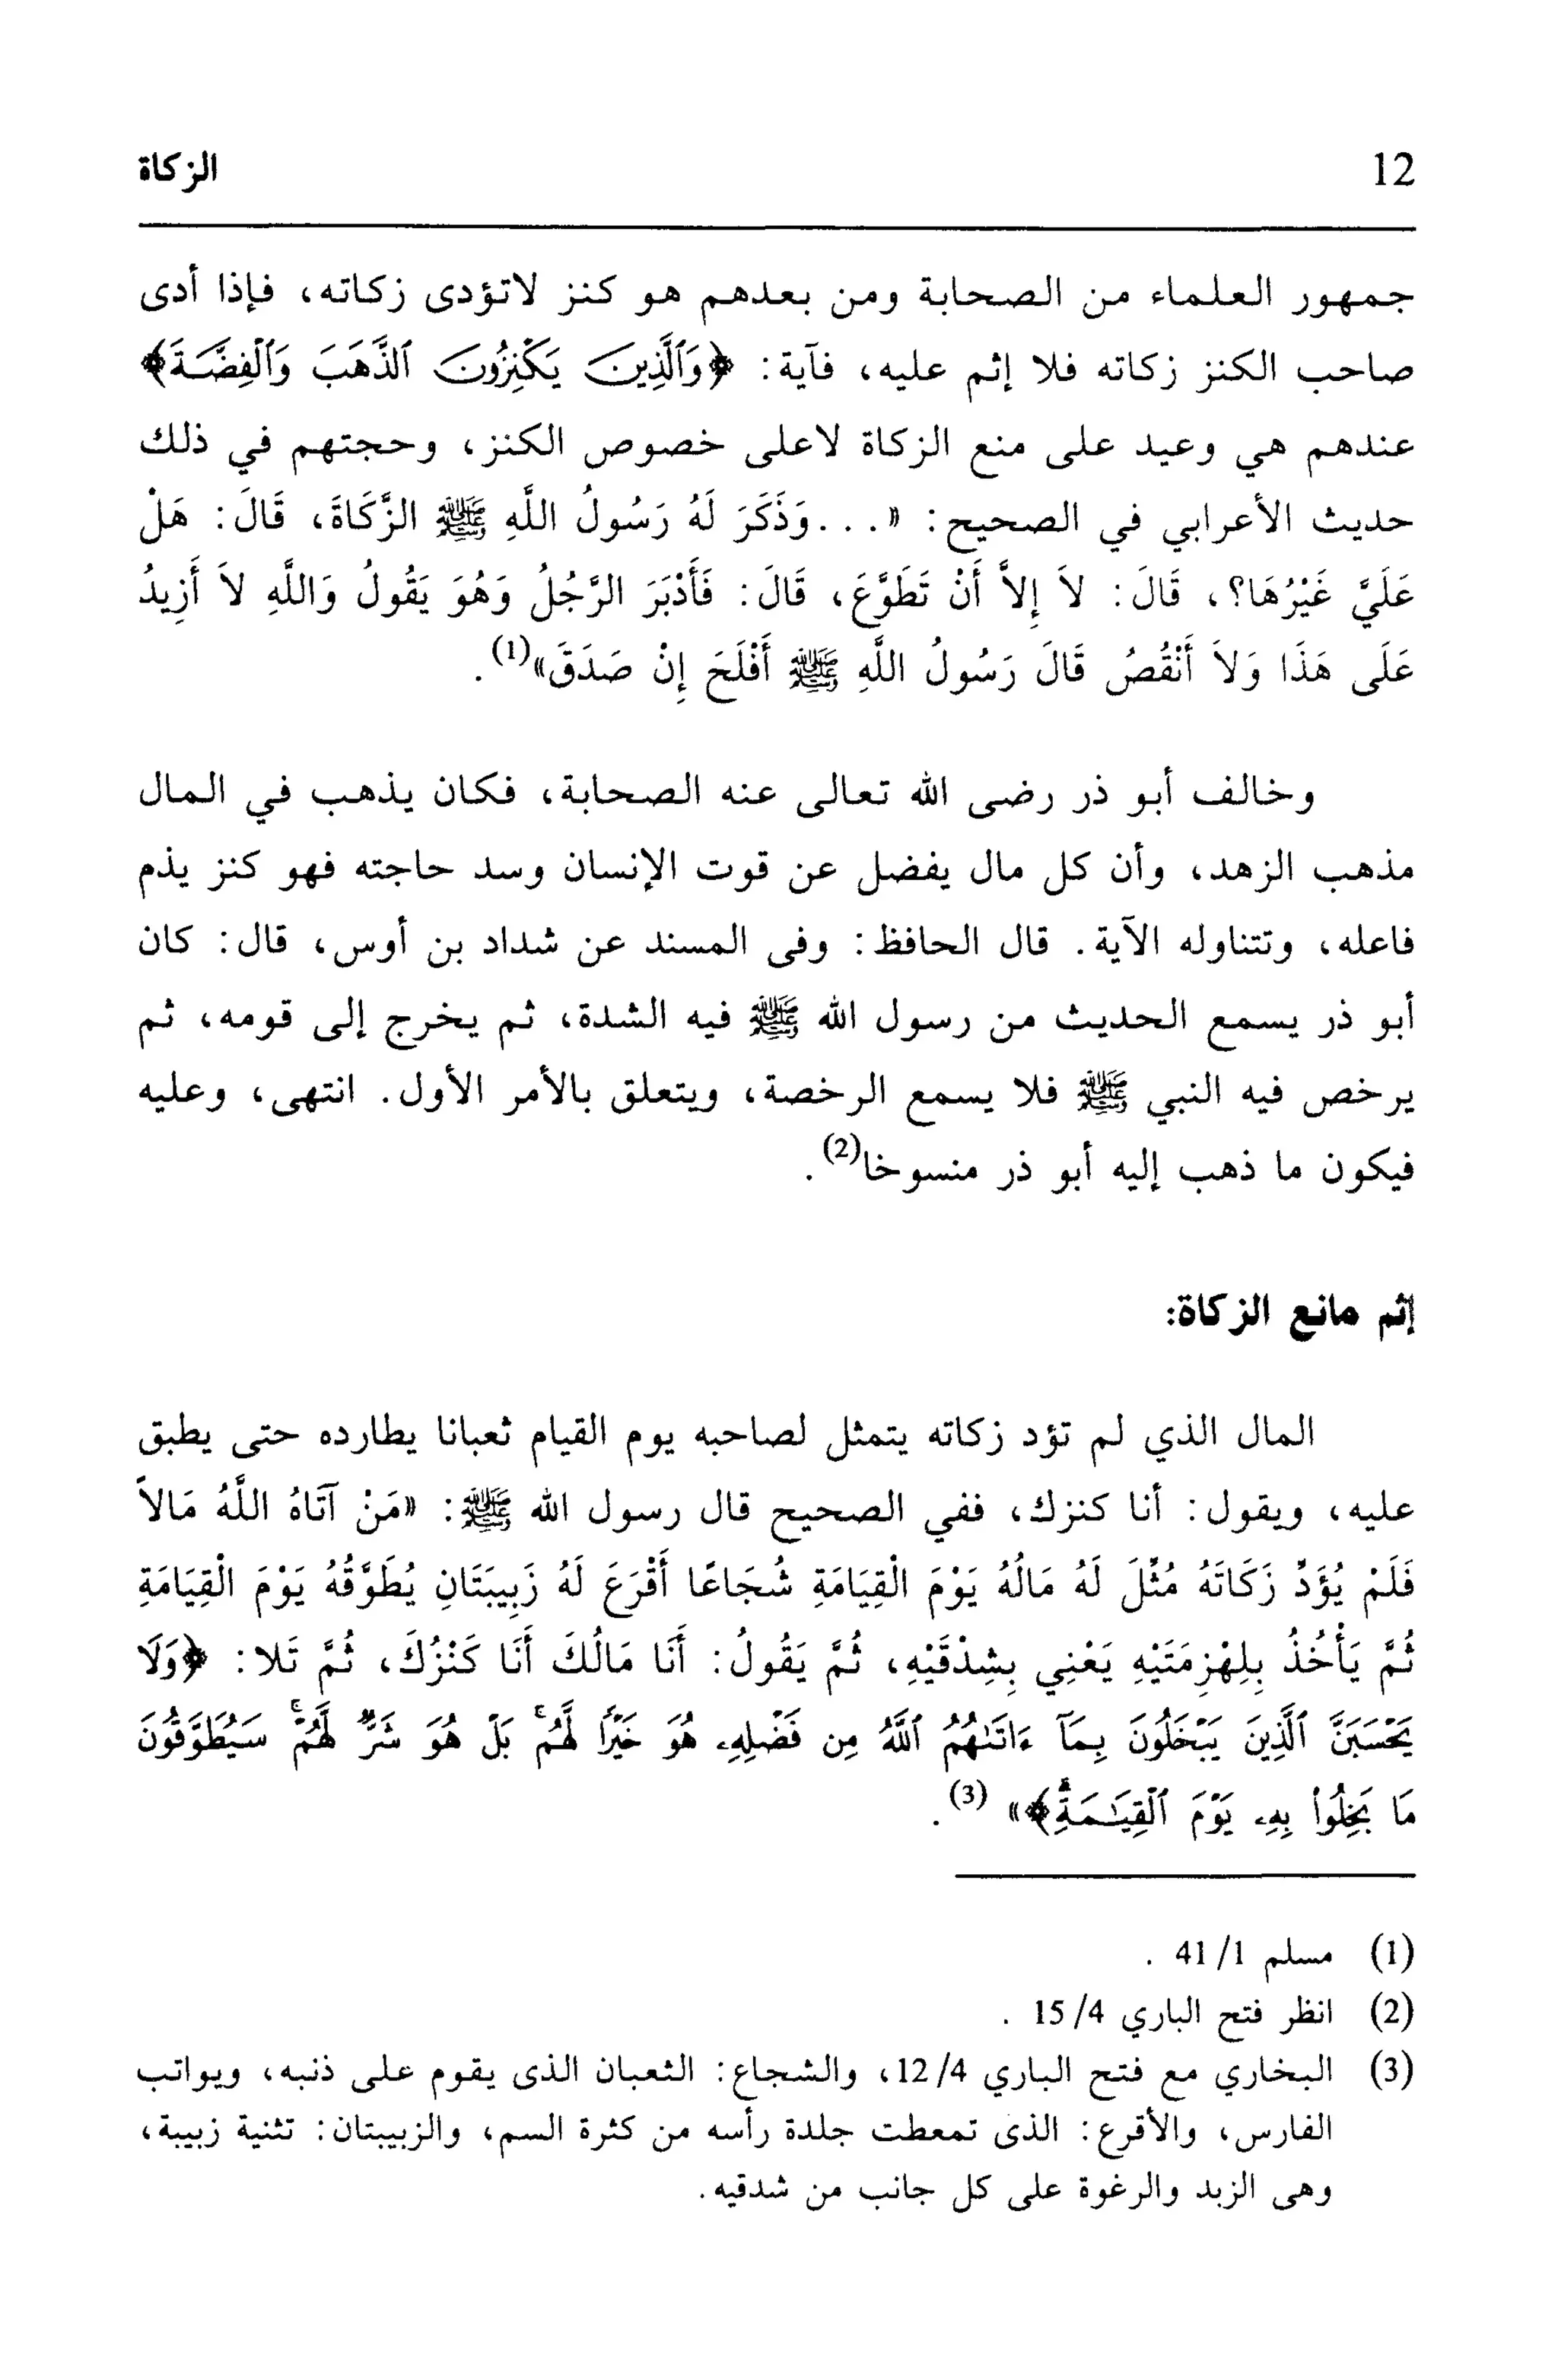 12
الزكاة
جمهور العلماء من الصحابة ومن بعدهم هو كنز لاتؤدى زكاته، فإذا أدى
صاحب الكنز زكاته فلا إثم عليه، فآية: ﴿وَٱلَّذِينَ يَكْنِزُونَ ٱلذَّهَبَ وَٱلْفِضَّةَ﴾
عندهم هي وعيد على منع الزكاة لاعلى خصوص الكنز، وحجتهم في ذلك
حديث الأعرابي في الصحيح: «...وَذَكَرَ لَهُ رَسُولُ اللَّهِ ﷺ الزَّكَاةَ، قَالَ: هَلْ
عَلَيَّ غَيْرُهَا؟، قَالَ: لاَ إِلاَّ أَنْ تَطَوَّعَ، قَالَ: فَأَدْبَرَ الرَّجُلُ وَهُوَ يَقُولُ وَاللَّهِ لاَ أَزِيدُ
عَلَى هَذَا وَلاَ أَنْقُصُ قَالَ رَسُولُ اللَّهِ ﷺ أَفْلَحَ إِنْ صَدَقَ»(1).
وخالف أبو ذر رضى الله تعالى عنه الصحابة، فكان يذهب في المال
مذهب الزهد، وأن كل مال يفضل عن قوت الإنسان وسد حاجته فهو كنز يذم
فاعله، وتتناوله الآية. قال الحافظ: وفى المسند عن شداد بن أوس، قال: كان
أبو ذر يسمع الحديث من رسول الله ﷺ فيه الشدة، ثم يخرج إلى قومه، ثم
يرخص فيه النبي ﷺ فلا يسمع الرخصة، ويتعلق بالأمر الأول. انتهى، وعليه
فيكون ما ذهب إليه أبو ذر منسوخا(2).
إثم مانع الزكاة:
المال الذي لم تؤد زكاته يتمثل لصاحبه يوم القيام ثعبانا يطارده حتى يطبق
عليه، ويقول: أنا كنزك، ففي الصحيح قال رسول الله ﷺ: «مَنْ آتَاهُ اللَّهُ مَالاً
فَلَمْ يُؤَدِّ زَكَاتَهُ مُثِّلَ لَهُ مَالُهُ يَوْمَ الْقِيَامَةِ شُجَاعًا أَقْرَعَ لَهُ زَبِيبَتَانِ يُطَوَّقُهُ يَوْمَ الْقِيَامَةِ
ثُمَّ يَأْخُذُ بِلِهْزِمَتَيْهِ يَعْنِي بِشِدْقَيْهِ، ثُمَّ يَقُولُ: أَنَا مَالُكَ أَنَا كَنْزُكَ، ثُمَّ تَلا: ﴿وَلَا
يَحْسَبَنَّ ٱلَّذِينَ يَبْخَلُونَ بِمَآ ءَاتَىٰهُمُ ٱللَّهُ مِن فَضْلِهِۦ هُوَ خَيْرًا لَّهُمۖ بَلْ هُوَ شَرٌّ لَّهُمْۖ سَيُطَوَّقُونَ
مَا بَخِلُوا۟ بِهِۦ يَوْمَ ٱلْقِيَـٰمَةِۗ﴾» (3).
(1) مسلم 1/ 41 .
(2) انظر فتح الباري 4/ 15 .
(3) البخاري مع فتح الباري 4/ 12، والشجاع: الثعبان الذى يقوم على ذنبه، ويواتب
الفارس، والأقرع: الذى تمعطت جلدة رأسه من كثرة السم، والزبيبتان: تثنية زبيبة،
وهى الزبد والرغوة على كل جانب من شدقيه.